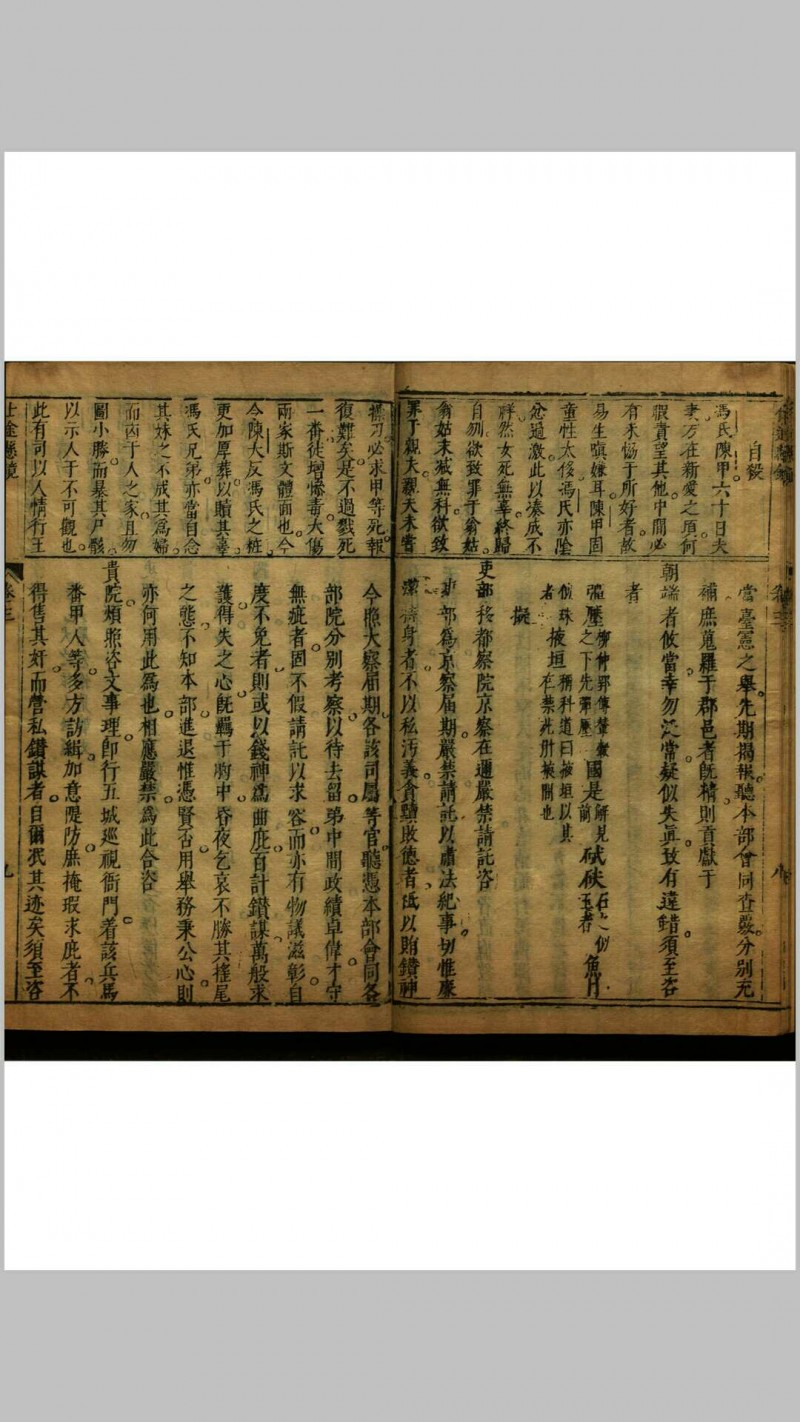 自殺
馮氏陳甲六十日夫
妻方在新愛之頃何
暇責望至其他中間必
有未協于所好者故
易生嗔嫌耳陳甲固
童性太傻馮氏亦陰
忿過激此以湊成不
祥然女死無辜終歸
自刎欲致罪于翁姑
翁姑末減無科欲致
罪于親夫親夫未嘗
操刃必求甲等死報
復難矣是不過戮死
一番徒增慘毒大傷
兩家斯文體面也今
令陳大反馮氏之粧
更加厚葬以贖其辜
馮氏兄弟亦當自念
其妹之不成其為婦
而凶于人之家且勿
圖小勝而暴其尸骸
以示人于不可觀也
此有司以人情行王
卷三
八
當臺憲之舉先期揭報聽本部會同查覈分別充
補庶蒐羅于郡邑者既精則貢獻于
朝端者攸當幸勿泛常疑似失真致有違錯須至咨
者
彈壓 之下先彈壓 國是 解見前 砥砆 石之似玉者 魚目
似珠者 掖垣 稱科道曰掖垣以其在禁苑肘掖關也
擬
吏部移都察院京察在邇嚴禁請託咨
吏部為京察屆期嚴禁請託以肅法紀事切惟廉
潔禔身者不以私汚義貪黷敗德者低以賄鑽神
今照大察屆期各該司屬等官聽憑本部會同各
部院分別考察以待去留弟中間政績卓偉才守
無疵者固不假請託以求容而亦有物議滋彰自
度不免者則或以錢神為曲庇百計鑽謀萬般求
護得失之心既羈于胸中昏夜乞哀不勝其搖尾
之態不知本部進退惟憑賢否用舉務秉公心則
亦何用此為也相應嚴禁為此合咨
貴院煩照咨文事理即行五城巡視衙門着該兵馬
番甲人等多方訪緝加意隄防庶掩瑕求庇者不
得售其奸而營私鑽謀者自爾泯其迹矣須至咨
仕途懸鏡
卷三
九